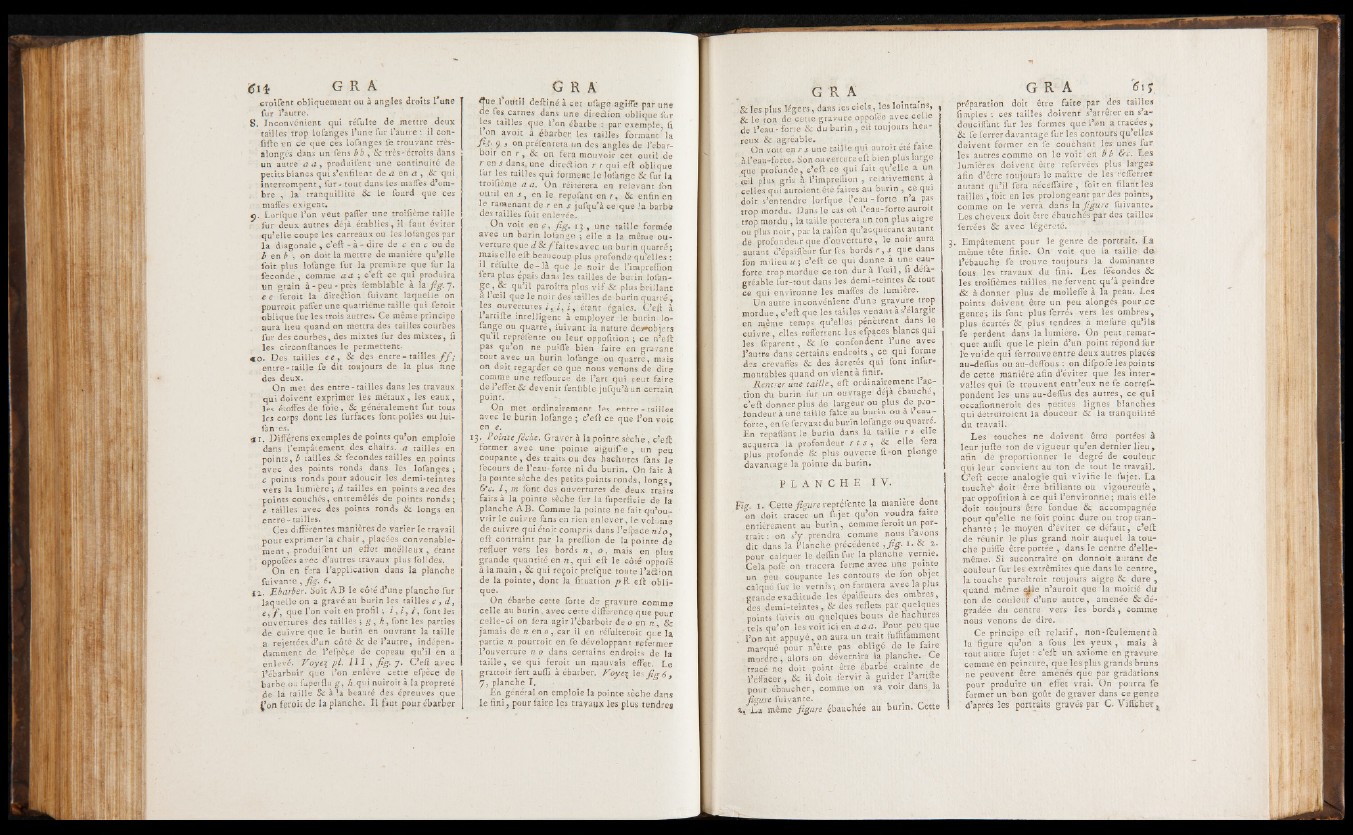 614 GRA
croisent obliquement ou à angles droits l'une
sur l'autre.
8. Inconvénient qui résulte de mettre deux
tailles trop losanges l'une sur l'autre : il con-
siste en ce que ces losanges se trouvant très-
alongés dans un sens b b, & très-étroits dans
un autre a a, produisent une continuité de
petits blancs qui s'enfilent de a en a, & qui
interrompent, sur-tout dans les masses d'om-
bre, la tranquillité & le sourd que ces
masses exigent.
9. Lorsque l'on veut passer une troisième taille
sur deux autres déjà établies, il faut éviter
qu'elle coupe les carreaux ou les losanges par
la diagonale, c'est-à-dire de c en c ou de
b en b ; on doit la mettre de manière qu'elle
soit plus losange sur la première que sur la
seconde, comme a d ; c'est ce qui produira
un grain à-peu-près semblable à la fig. 7.
e e seroit la direction suivant laquelle on
pourroit passer une quatrième taille qui seroit
oblique sur les trois autres. Ce même principe
aura lieu quand on mettra des tailles courbes
sur des courbes, des mixtes sur des mixtes, si
les circonstances le permettent.
10. Des tailles e e, & des entre-tailles f f ;
entre-taille se dit toujours de la plus fine
des deux.
On met des entre-tailles dans les travaux
qui doivent exprimer les métaux, les eaux,
les étoffes de soie, & généralement sur tous
les corps dont les surfaces sont polies ou lui-
santes.
11. Différens exemples de points qu'on emploie
dans l'empâtement des chairs. a tailles en
points, b tailles & secondes tailles en points
avec des points ronds dans les losanges ;
c points ronds pour adoucir les demi-teintes
vers la lumière ; d tailles en points avec des
points couchés, entremêlés de points ronds ;
e tailles avec des points ronds & longs en
entre-tailles.
Ces différentes manières de varier le travail
pour exprimer la chair, placées convenable-
ment, produisent un effet moëlleux, étant
opposées avec d'autres travaux plus solides.
On en fera l'application dans la planche
suivante, fig. 6.
12. Ebarber. Soit A B le côté d'une planche sur
laquelle on a gravé au burin les tailles c, d,
e, f, que l'on voit en profil, i, i, i, sont les
ouvertures des tailles ; g, h, sont les parties
de cuivre que le burin en ouvrant la taille
a rejettées d'un côté & de l'autre, indépen-
damment de l'espèce de copeau qu'il en a
enlevé. Voyez pl. III, fig. 7. C'est avec
l'ébarboir que l'on enlève cette espèce de
barbe ou superflu g, h qui nuiroit à la propreté
de la taille & à la beauté des épreuves que
l'on feroit de la planche. Il faut pour ébarber
GRA
que l'outil destiné à cet usage agisse par une
de ses carnes dans une direction oblique sur
les tailles que l'on ébarbe : par exemple, si
l'on avoit à ébarber les tailles formant la
fig. 9, on présentera un des angles de l'ébar-
boir en r, & on fera mouvoir cet outil de
r en s dans une direction r r qui est oblique
sur les tailles qui forment le losange & sur la
troisième a a. On réitérera en relevant son
outil en s, en le reposant en r, & enfin en
le ramenant de r en s jusqu'à ce que la barbe
des tailles soit enlevée.
On voit en c, fig. 13, une taille formée
avec un burin losange ; elle a la même ou-
verture que d & f faites avec un burin quarré ;
mais elle est beaucoup plus profonde qu'elles :
il résulte de-là que le noir de l'impression
sera plus épais dans les tailles de burin losan-
ge, & qu'il paroîtra plus vif & plus brillant
à l'œil que le noir des tailles de burin quarré,
les ouvertures i, i, i, étant égales. C'est à
l'artiste intelligent à employer le burin lo-
sange ou quarré, suivant la nature des objets
qu'il représente ou leur opposition ; ce n'est
pas qu'on ne puisse bien faire en gravant
tout avec un burin losange ou quarré, mais
on doit regarder ce que nous venons de dire
comme une ressource de l'art qui peut faire
de l'effet & devenir sensible jusqu'à un certain
point.
On met ordinairement les entre-tailles
avec le burin losange ; c'est ce que l'on voit
en e.
13. Pointe sèche. Graver à la pointe sèche, c'est
former avec une pointe aiguisée, un peu
coupante, des traits ou des hachures sans le
secours de l'eau-forte ni du burin. On fait à
la pointe sèche des petits points ronds, longs,
&c. l, m sont des ouvertures de deux traits
faits à la pointe sèche sur la superficie de la
planche A B. Comme la pointe ne fait qu'ou-
vrir le cuivre sans en rien enlever, le volume
de cuivre qui étoit compris dans l'espace n l o,
est contraint par la pression de la pointe de
refluer vers les bords n, o, mais en plus
grande quantité en n, qui est le côté opposé
à la main, & qui reçoit presque toute l'action
de la pointe, dont la situation p R est obli-
que.
On ébarbe cette sorte de gravure comme
celle au burin, avec cette différence que pour
celle-ci on fera agir l'ébarboir de o en n, &
jamais de n en o, car il en résulteroit que la
partie n pourroit en se développant refermer
l'ouverture n o dans certains endroits de la
taille, ce qui feroit un mauvais effet. Le
grattoir sert aussi à ébarber. Voyez les fig 6,
7, planche I.
En général on emploie la pointe sèche dans
le fini, pour faire les travaux les plus tendres
GRA
& les plus légers, dans les ciels, les lointains,
& le ton de cette gravure opposée avec celle
de l'eau-forte & du burin, est toujours heu-
reux & agréable.
On voit en r s une taille qui auroit été faite
à l'eau-forte. Son ouverture est bien plus large
que profonde, c'est ce qui fait qu'elle a un
œil plus gris à l'impression, relativement à
celles qui auroient été faites au burin, ce qui
doit s'entendre lorsque l'eau-forte n'a pas
trop mordu. Dans le cas où l'eau-forte auroit
trop mordu, la taille portera un ton plus aigre
ou plus noir, par la raison qu'acquérant autant
de profondeur que d'ouverture, le noir aura
autant d'épaisseur sur ses bords r, s que dans
son milieu u ; c'est ce qui donne à une eau-
forte trop mordue ce ton dur à l'œil, si désa-
gréable sur-tout dans les demi-teintes & tout
ce qui environne les masses de lumière.
Un autre inconvénient d'une gravure trop
mordue, c'est que les tailles venant à s'élargir
en même temps qu'elles pénètrent dans le
cuivre, elles resserrent les espaces blancs qui
les séparent, & se confondent l'une avec
l'autre dans certains endroits, ce qui forme
des crevasses & des âcretés qui sont insur-
montables quand on vient à finir.
Rentrer une taille, est ordinairement l'ac-
tion du burin sur un ouvrage déjà ébauché,
c'est donner plus de largeur ou plus de pro-
fondeur à une taille faite au burin ou à l'eau-
forte, en se servant du burin losange ou quarré.
En repassant le burin dans la taille r s elle
acquerra la profondeur r t s, & elle sera
plus profonde & plus ouverte si-on plonge
davantage la pointe du burin.
PLANCHE IV.
Fig. 1. Cette figure représente la manière dont
on doit tracer un sujet qu'on voudra faire
entièrement au burin, comme seroit un por-
trait : on s'y prendra comme nous l'avons
dit dans la Planche précédente, fig. 1. & 2.
pour calquer le dessin sur la planche vernie.
Cela posé on tracera ferme avec une pointe
un peu coupante les contours de son objet
calqué sur le vernis ; on formera avec la plus
grande exactitude les épaisseurs des ombres,
des demi-teintes, & des reflets par quelques
points suivis ou quelques bouts de hachures
tels qu'on les voit ici en a a a. Pour peu que
l'on ait appuyé, on aura un trait suffisamment
marqué pour n'être pas obligé de le faire
mordre, alors on dévernira la planche. Ce
tracé ne doit point être ébarbé crainte de
l'effacer, & il doit servir à guider l'artiste
pour ébaucher, comme on va voir dans la
figure suivante.
2. La même figure ébauchée au burin. Cette
GRA 615
préparation doit être faite par des tailles
simples : ces tailles doivent s'arrêter en s'a-
doucissant sur les formes que l'on a tracées,
& se serrer davantage sur les contours qu'elles
doivent former en se couchant les unes sur
les autres comme on le voit en b b &c. Les
lumières doivent être réservées plus larges
afin d'être toujours le maître de les resserrer
autant qu'il sera nécessaire, soit en filant les
tailles, soit en les prolongeant par des points,
comme on le verra dans la figure suivante.
Les cheveux doit être ébauchés par des tailles
serrées & avec légèreté.
3. Empâtement pour le genre de portrait. La
même tête finie. On voit que la taille de
l'ébauche se trouve toujours la dominante
sous les travaux du fini. Les secondes &
les troisièmes tailles ne servent qu'à peindre
& à donner plus de molesse à la peau. Les
points doivent être un peu alongés pour ce
genre ; ils sont plus serrés vers les ombres,
plus écartés & plus tendres à mesure qu'ils
se perdent dans la lumière. On peut remar-
quer aussi que le plein d'un point répond sur
le vuide qui se trouve entre deux autres placés
au-dessus ou au-dessous : on dispose les points
de cette manière afin d'éviter que les inter-
valles qui se trouvent entr'eux ne se corres-
pondent les uns au-dessus des autres, ce qui
occasionneroit des petites lignes blanches
qui détruiroient la douceur & la tranquilité
du travail.
Les touches ne doivent être portées à
leur juste ton de vigueur qu'en dernier lieu,
afin de proportionner le degré de couleur
qui leur convient au ton de tout le travail.
C'est cette analogie qui vivifie le sujet. La
touche doit être brillante ou vigoureuse,
par opposition à ce qui l'environne ; mais elle
doit toujours être fondue & accompagnée
pour qu'elle ne soit point dure ou trop tran-
chante ; le moyen d'éviter ce défaut, c'est
de réunir le plus grand noir auquel la tou-
che puisse être portée, dans le centre d'elle-
même. Si aucontraire on donnoit autant de
couleur sur les extrêmites que dans le centre,
la touche paroîtroit toujours aigre & dure,
quand même elle n'auroit que la moitié du
ton de couleur d'une autre, amenée & dé-
gradée du centre vers les bords, comme
nous venons de dire.
Ce principe est relatif, non-seulement à
la figure qu'on a sous les yeux, mais à
tout autre sujet : c'est un axiome en gravure
comme en peinture, que les plus grands bruns
ne peuvent être amenés que par gradations
pour produire un effet vrai. On pourra se
former un bon goût de graver dans ce genre
d'après les portraits gravés par C. Visscher,